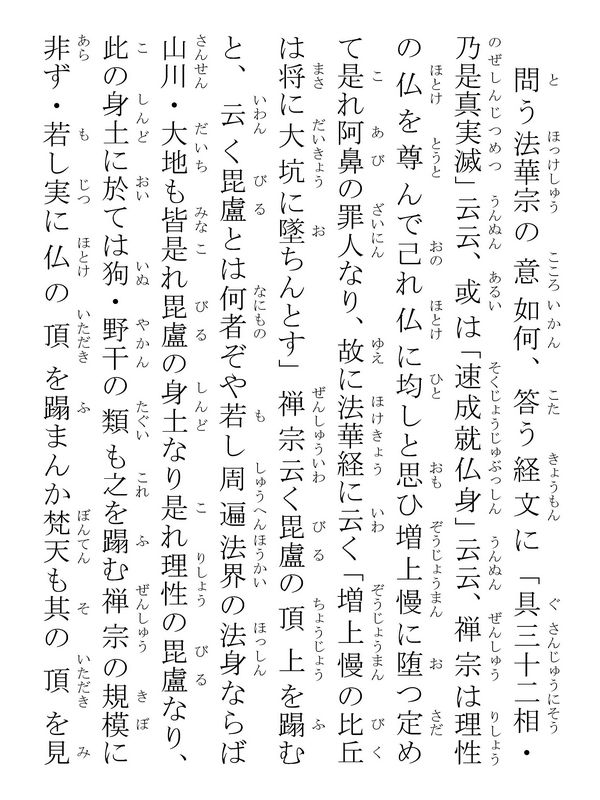 問う法華宗の意如何、答う経文に「具三十二相・
乃是真実滅」云云、或は「速成就仏身」云云、禅宗は理性
の仏を尊んで己れ仏に均しと思ひ増上慢に堕つ定め
て是れ阿鼻の罪人なり、故に法華経に云く「増上慢の比丘
は将に大坑に墜ちんとす」禅宗云く毘盧の頂上を蹋む
と、云く毘盧とは何者ぞや若し周遍法界の法身ならば
山川・大地も皆是れ毘盧の身土なり是れ理性の毘盧なり、
此の身土に於ては狗・野干の類も之を蹋む禅宗の規模に
非ず・若し実に仏の頂を蹋まんか梵天も其の頂を見